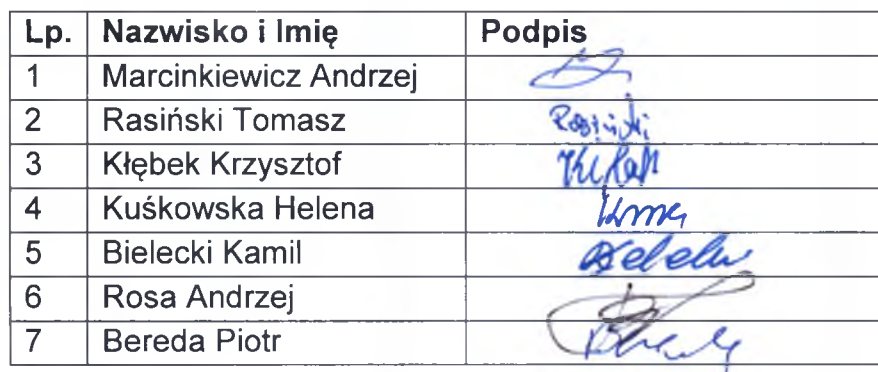 Lp. Nazwisko i Imię Podpis
1 Marcinkiewicz Andrzej
2 Rasiński Tomasz Rasiński
3 Kłębek Krzysztof
4 Kuśkowska Helena
5 Bielecki Kamil
6 Rosa Andrzej
7 Bereda Piotr